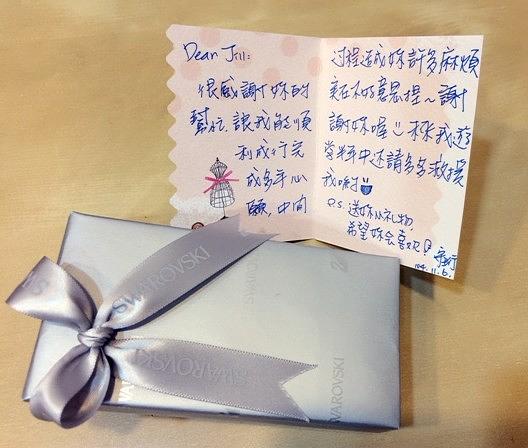 Dear Jill:
很感謝妳的
幫忙,讓我能順
利成行完
成多年心
願,中間
過程造成妳許多麻煩
實在不好意思捏~謝
謝妳喔
當中還請多多救援
我喲
P.S. 送妳小禮物,
希望妳会喜欢!
104.11.6.
SWAROVSKI
SWAROVSKI
SWAROVSKI
SWAROVSKI